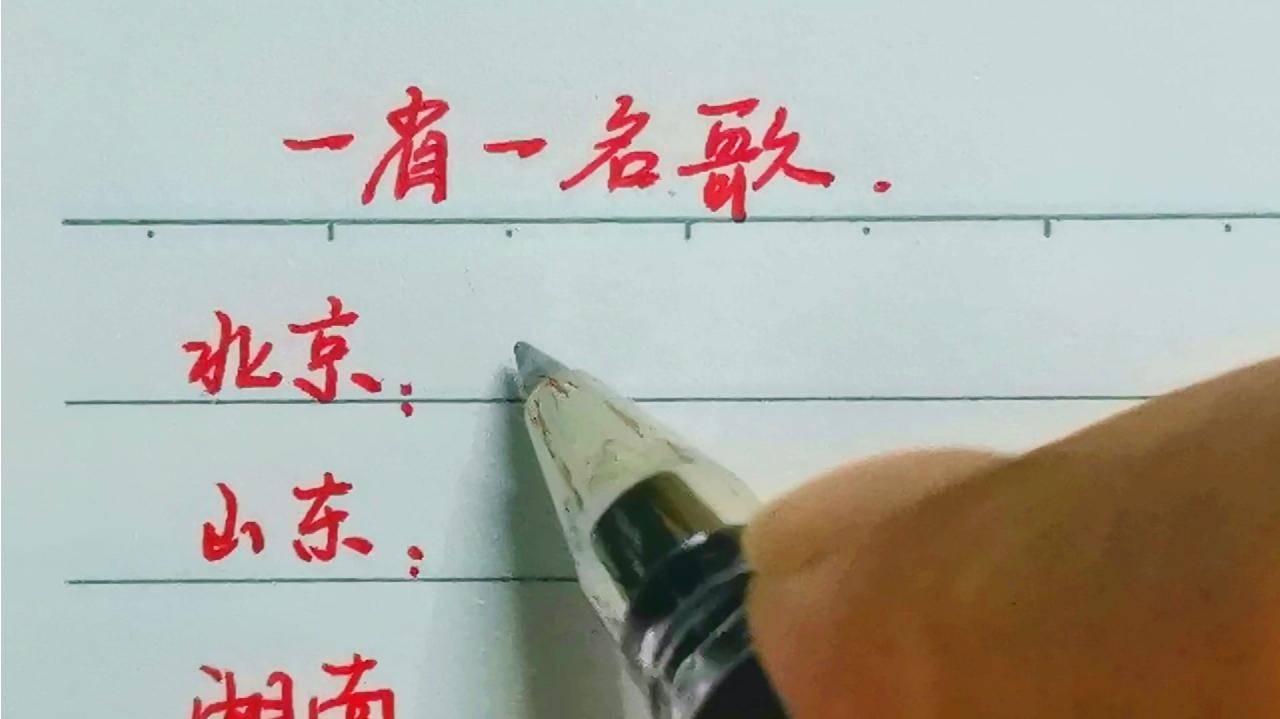 一省一名歌.
北京:
山东:
湖南